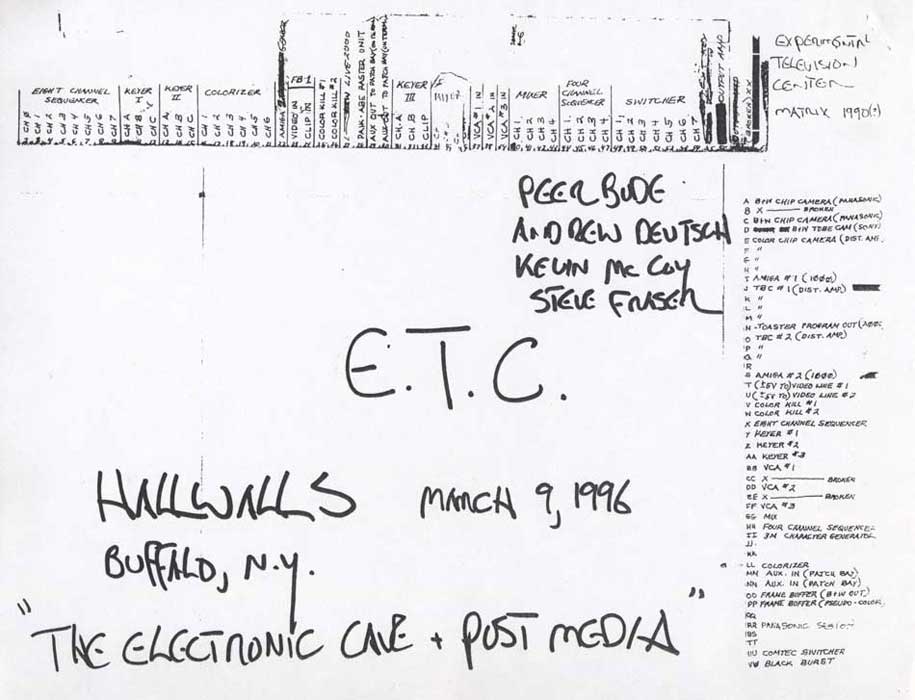 EXPERIMENTAL
TELEVISION
CENTER
MATRIX 1990(?)
EIGHT CHANNEL SEQUENCER
CH 1
CH 2
CH 3
CH 4
CH 5
CH 6
CH 7
KEYER I
CH A
CH B
CH C
KEYER II
CH A
CH B
CH C
COLORIZER
CH 1
CH 2
CH 3
CH 4
CH 5
CH 6
FB-1
VIDEO IN
CLIP IN
COLOR KILL #1
COLOR KILL #2
KEYER III
CH. A
CH. B
CLIP
VCA #1 IN
VCA #2 IN
VCA #3 IN
MIXER
CH 1
CH 2
CH 3
CH 4
FOUR CHANNEL SEQUENCER
CH 1
CH 2
CH 3
CH 4
SWITCHER
CH 1
CH 2
CH 3
CH 4
CH 5
CH 6
CH 7
PEER BODE
ANDREW DEUTSCH
KEVIN McCOY
STEVE FRASER
E.T.C.
HALLWALLS MARCH 9, 1996
BUFFALO, N.Y.
"THE ELECTRONIC CAVE + POST MEDIA"
A B+W CHIP CAMERA (PANASONIC)
B X BROKEN
C B+W CHIP CAMERA (PANASONIC)
D B+W TUBE CAM (SONY)
E COLOR CHIP CAMERA (DIST. AMP.
F "
G "
H "
I AMIGA #1 (1000)
J TBC #1 (DIST. AMP)
K "
L "
M "
N TOASTER PROGRAM OUT (2000)
O TBC #2 (DIST. AMP)
P "
Q "
R
S AMIGA #2 (1000)
T (±5V TO) VIDEO LINE #1
U (±5V TO) VIDEO LINE #2
V COLOR KILL #1
W COLOR KILL #2
X EIGHT CHANNEL SEQUENCER
Y KEYER #1
Z KEYER #2
AA KEYER #3
BB VCA #1
CC X BROKEN
DD VCA #2
EE X BROKEN
FF VCA #3
GG MIX
HH FOUR CHANNEL SEQUENCE
II 3M CHARACTER GENERATOR
JJ
KK
LL COLORIZER
MM AUX. IN (PATCH BAY)
NN AUX. IN (PATCH BAY)
OO FRAME BUFFER (B+W OUT)
PP FRAME BUFFER (PSEUDO-COLOR)
QQ
RR PANASONIC
SS
TT
UU COMTEC SWITCHER
VV BLACK BURST